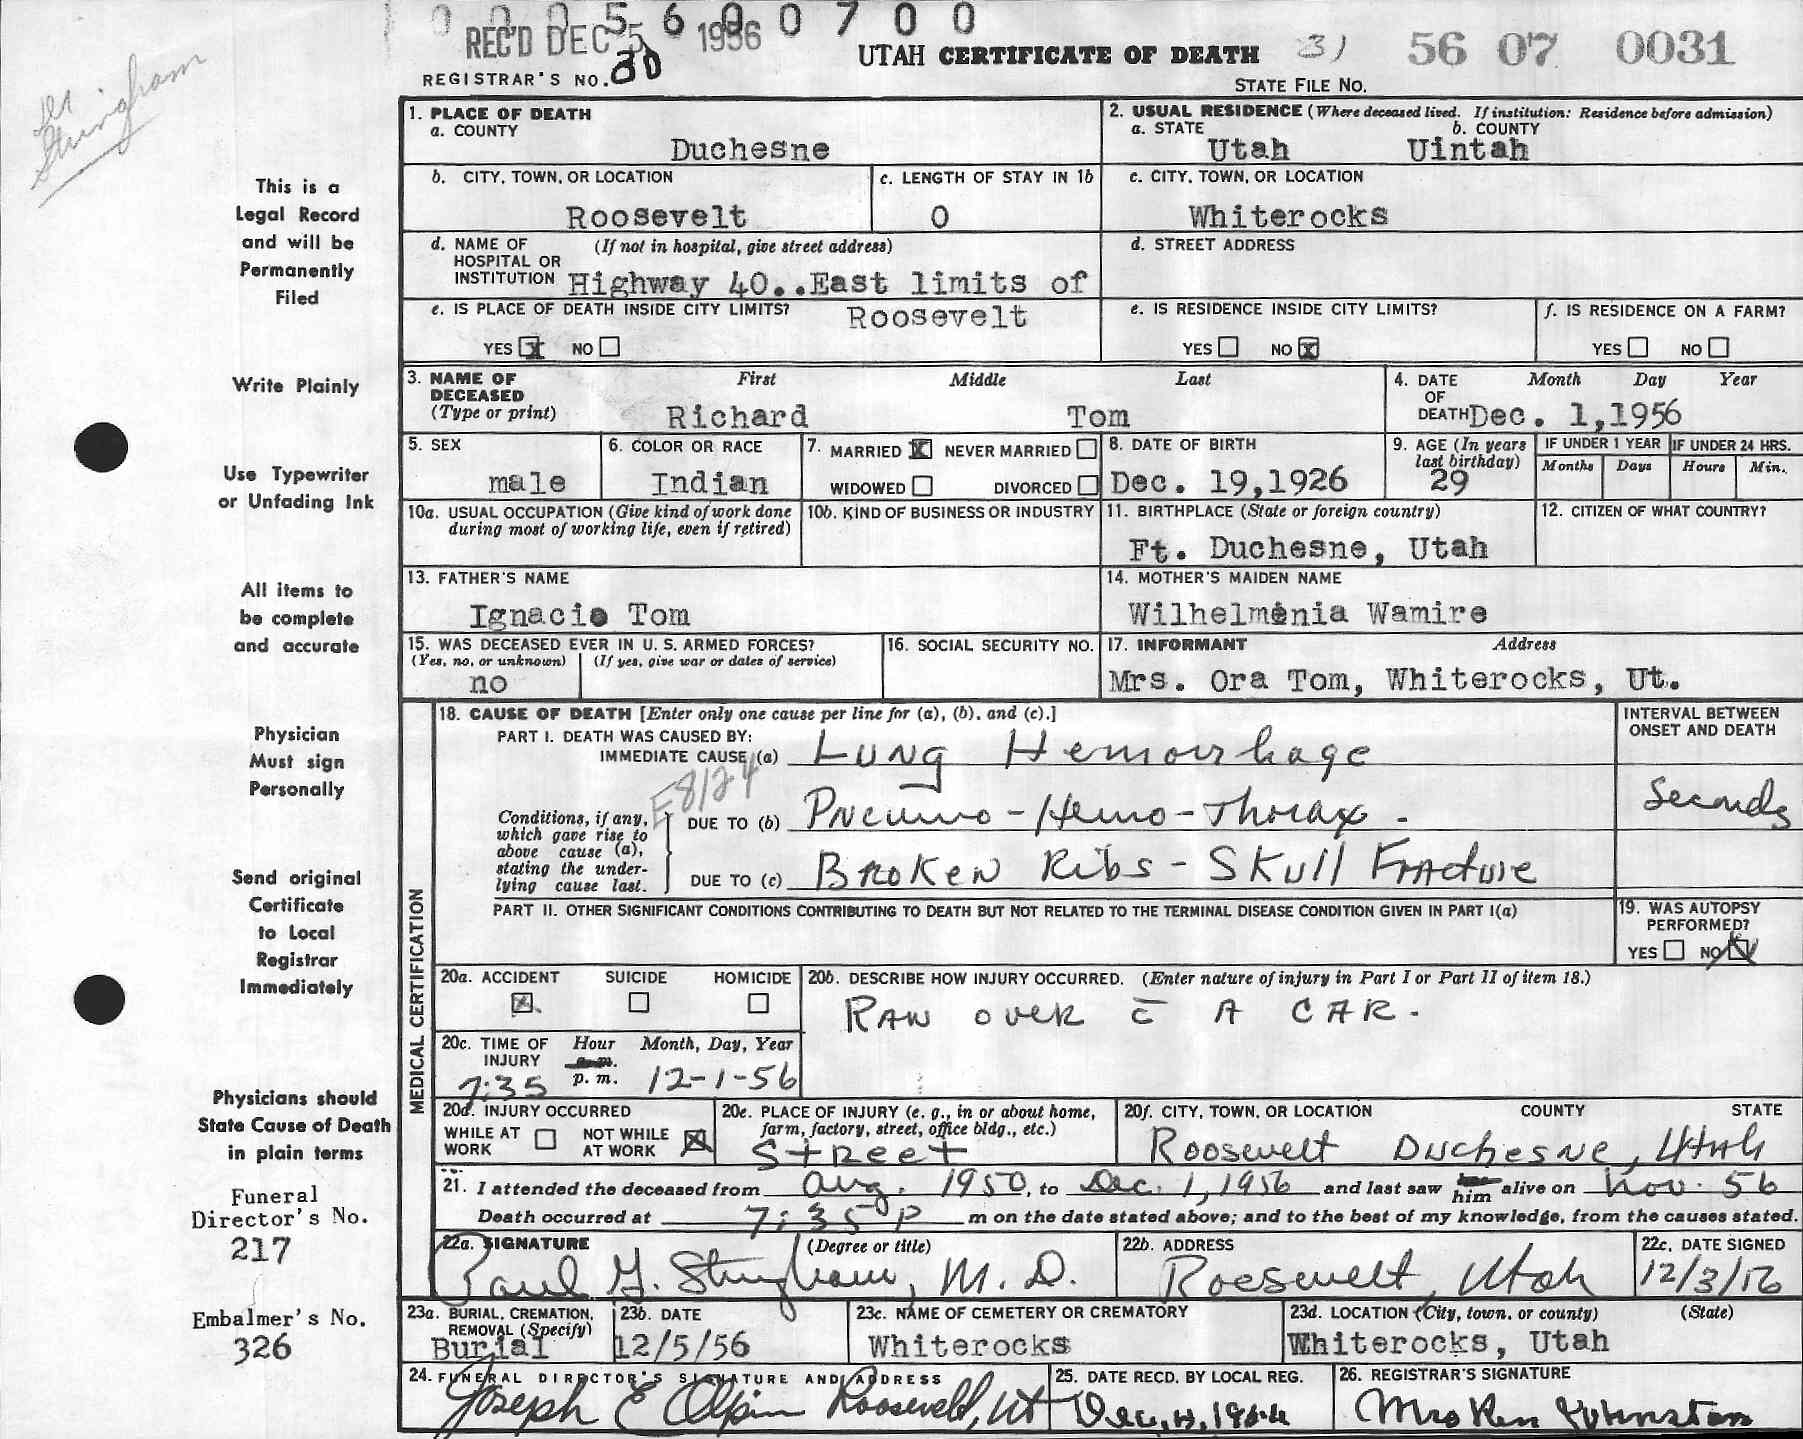 0 0 0 5 6 0 0 7 0 0
REC'D DEC 5 1956
UTAH CERTIFICATE OF DEATH 31 56 07 0031
REGISTRAR'S NO. 30
STATE FILE NO.
Stringham
1. PLACE OF DEATH
a. COUNTY
Duchesne
2. USUAL RESIDENCE (Where deceased lived. If institution: Residence before admission)
a. STATE b. COUNTY
Utah Uintah
b. CITY, TOWN, OR LOCATION
Roosevelt
c. LENGTH OF STAY IN 1b
0
c. CITY, TOWN, OR LOCATION
Whiterocks
d. NAME OF HOSPITAL OR INSTITUTION (If not in hospital, give street address)
Highway 40..East limits of
Roosevelt
d. STREET ADDRESS
e. IS PLACE OF DEATH INSIDE CITY LIMITS?
YES X NO
e. IS RESIDENCE INSIDE CITY LIMITS?
YES NO X
f. IS RESIDENCE ON A FARM?
YES NO
3. NAME OF DECEASED (Type or print)
First Middle Last
Richard Tom
4. DATE OF DEATH Month Day Year
Dec. 1,1956
5. SEX
male
6. COLOR OR RACE
Indian
7. MARRIED X NEVER MARRIED
WIDOWED DIVORCED
8. DATE OF BIRTH
Dec. 19,1926
9. AGE (In years last birthday)
29
IF UNDER 1 YEAR IF UNDER 24 HRS.
Months Days Hours Min.
10a. USUAL OCCUPATION (Give kind of work done during most of working life, even if retired)
10b. KIND OF BUSINESS OR INDUSTRY
11. BIRTHPLACE (State or foreign country)
Ft. Duchesne, Utah
12. CITIZEN OF WHAT COUNTRY?
13. FATHER'S NAME
Ignacio Tom
14. MOTHER'S MAIDEN NAME
Wilhelmenia Wamire
15. WAS DECEASED EVER IN U. S. ARMED FORCES?
(Yes, no, or unknown) (If yes, give war or dates of service)
no
16. SOCIAL SECURITY NO.
17. INFORMANT Address
Mrs. Ora Tom, Whiterocks, Ut.
MEDICAL CERTIFICATION
18. CAUSE OF DEATH [Enter only one cause per line for (a), (b), and (c).]
PART I. DEATH WAS CAUSED BY:
IMMEDIATE CAUSE (a) Lung Hemorrhage
E8124
Conditions, if any, which gave rise to above cause (a), stating the underlying cause last.
DUE TO (b) Pneumo-Hemo-Thorax.
DUE TO (c) Broken Ribs - Skull Fracture
INTERVAL BETWEEN ONSET AND DEATH
Seconds
PART II. OTHER SIGNIFICANT CONDITIONS CONTRIBUTING TO DEATH BUT NOT RELATED TO THE TERMINAL DISEASE CONDITION GIVEN IN PART I(a)
19. WAS AUTOPSY PERFORMED?
YES NO X
20a. ACCIDENT SUICIDE HOMICIDE
X
20b. DESCRIBE HOW INJURY OCCURRED. (Enter nature of injury in Part I or Part II of item 18.)
Ran over c̄ A CAR.
20c. TIME OF INJURY Hour Month, Day, Year
a.m.
7:35 p. m. 12-1-56
20d. INJURY OCCURRED
WHILE AT WORK NOT WHILE AT WORK X
20e. PLACE OF INJURY (e. g., in or about home, farm, factory, street, office bldg., etc.)
Street
20f. CITY, TOWN, OR LOCATION COUNTY STATE
Roosevelt Duchesne, Utah
21. I attended the deceased from Aug. 1950, to Dec. 1, 1956 and last saw him alive on Nov. 56
Death occurred at 7:35 P m on the date stated above; and to the best of my knowledge, from the causes stated.
22a. SIGNATURE (Degree or title)
Paul G. Stringham, M. D.
22b. ADDRESS
Roosevelt, Utah
22c. DATE SIGNED
12/3/56
23a. BURIAL, CREMATION, REMOVAL (Specify)
Burial
23b. DATE
12/5/56
23c. NAME OF CEMETERY OR CREMATORY
Whiterocks
23d. LOCATION (City, town, or county) (State)
Whiterocks, Utah
24. FUNERAL DIRECTOR'S SIGNATURE AND ADDRESS
Joseph E Olpin Roosevelt, Ut
25. DATE RECD. BY LOCAL REG.
26. REGISTRAR'S SIGNATURE
Mrs Ken Johnston
This is a
Legal Record
and will be
Permanently
Filed
Write Plainly
Use Typewriter
or Unfading Ink
All items to
be complete
and accurate
Physician
Must sign
Personally
Send original
Certificate
to Local
Registrar
Immediately
Physicians should
State Cause of Death
in plain terms
Funeral
Director's No.
217
Embalmer's No.
326